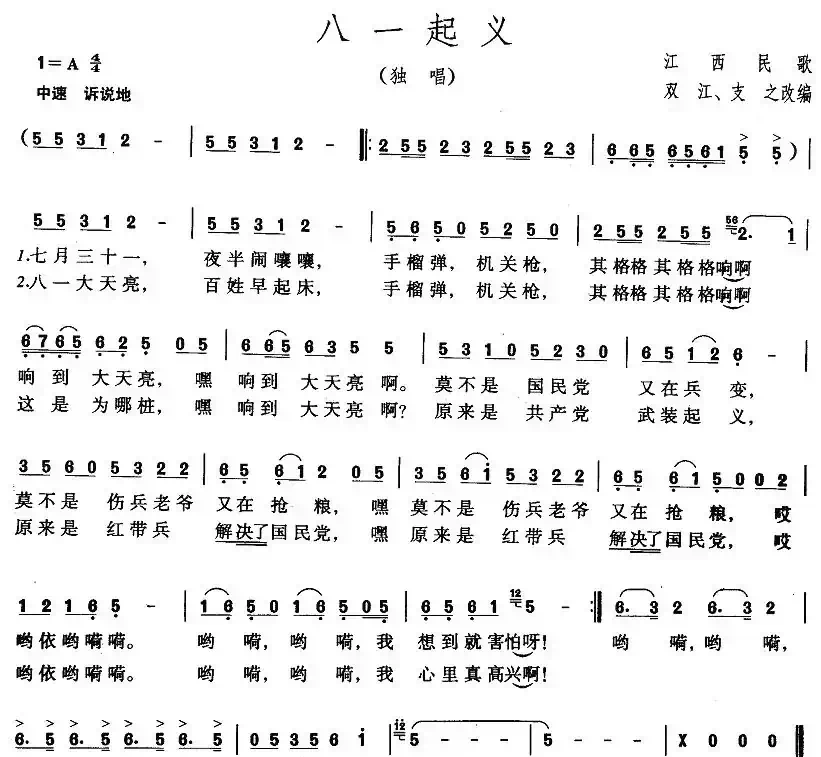 八一起义
(独 唱)
1=A 4/4
中速 诉说地
江西民歌
双江、支之改编
(5 5 3 1 2 - | 5 5 3 1 2 - |: 2 5 5 2 3 2 5 5 2 3 | 6 6 5 6 5 6 1 5 5) |
5 5 3 1 2 - | 5 5 3 1 2 - | 5 6 5 0 5 2 5 0 | 2 5 5 2 5 5 56 2. 1 |
1.七月三十一, 夜半闹嚷嚷, 手榴弹, 机关枪, 其格格其格格响啊
2.八一大天亮, 百姓早起床, 手榴弹, 机关枪, 其格格其格格响啊
6 7 6 5 6 2 5 0 5 | 6 6 5 6 3 5 5 | 5 3 1 0 5 2 3 0 | 6 5 1 2 6 - |
响到大天亮, 嘿 响到大天亮啊。莫不是 国民党 又在兵变,
这是为哪桩, 嘿 响到大天亮啊? 原来是 共产党 武装起义,
3 5 6 0 5 3 2 2 | 6 5 6 1 2 0 5 | 3 5 6 i 5 3 2 2 | 6 5 6 1 5 0 0 2 |
莫不是 伤兵老爷 又在抢粮, 嘿 莫不是 伤兵老爷 又在抢粮, 哎
原来是 红带兵 解决了国民党, 嘿 原来是 红带兵 解决了国民党, 哎
1 2 1 6 5 - | 1 6 5 0 1 6 5 0 5 | 6 5 6 1 12 5 - :| 6. 3 2 6. 3 2 |
哟依哟嗬嗬。 哟嗬, 哟嗬, 我 想到就害怕呀! 哟嗬, 哟嗬,
哟依哟嗬嗬。 哟嗬, 哟嗬, 我 心里真高兴啊!
6. 5 6. 5 6. 5 6. 5 | 0 5 3 5 6 i | i2 5 - - - | 5 - - - | X 0 0 0 ‖